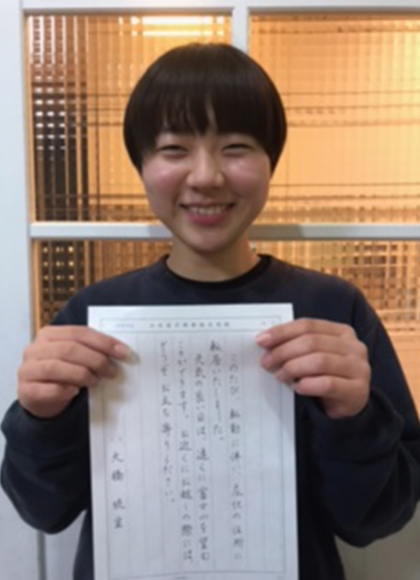 このたび、転勤に伴い、左記の住所に
転居いたしました。
天気の良い日は、遠くに富士山を望む
ことができます。お近くにお越しの際には、
どうぞお立ち寄りください。
大橋